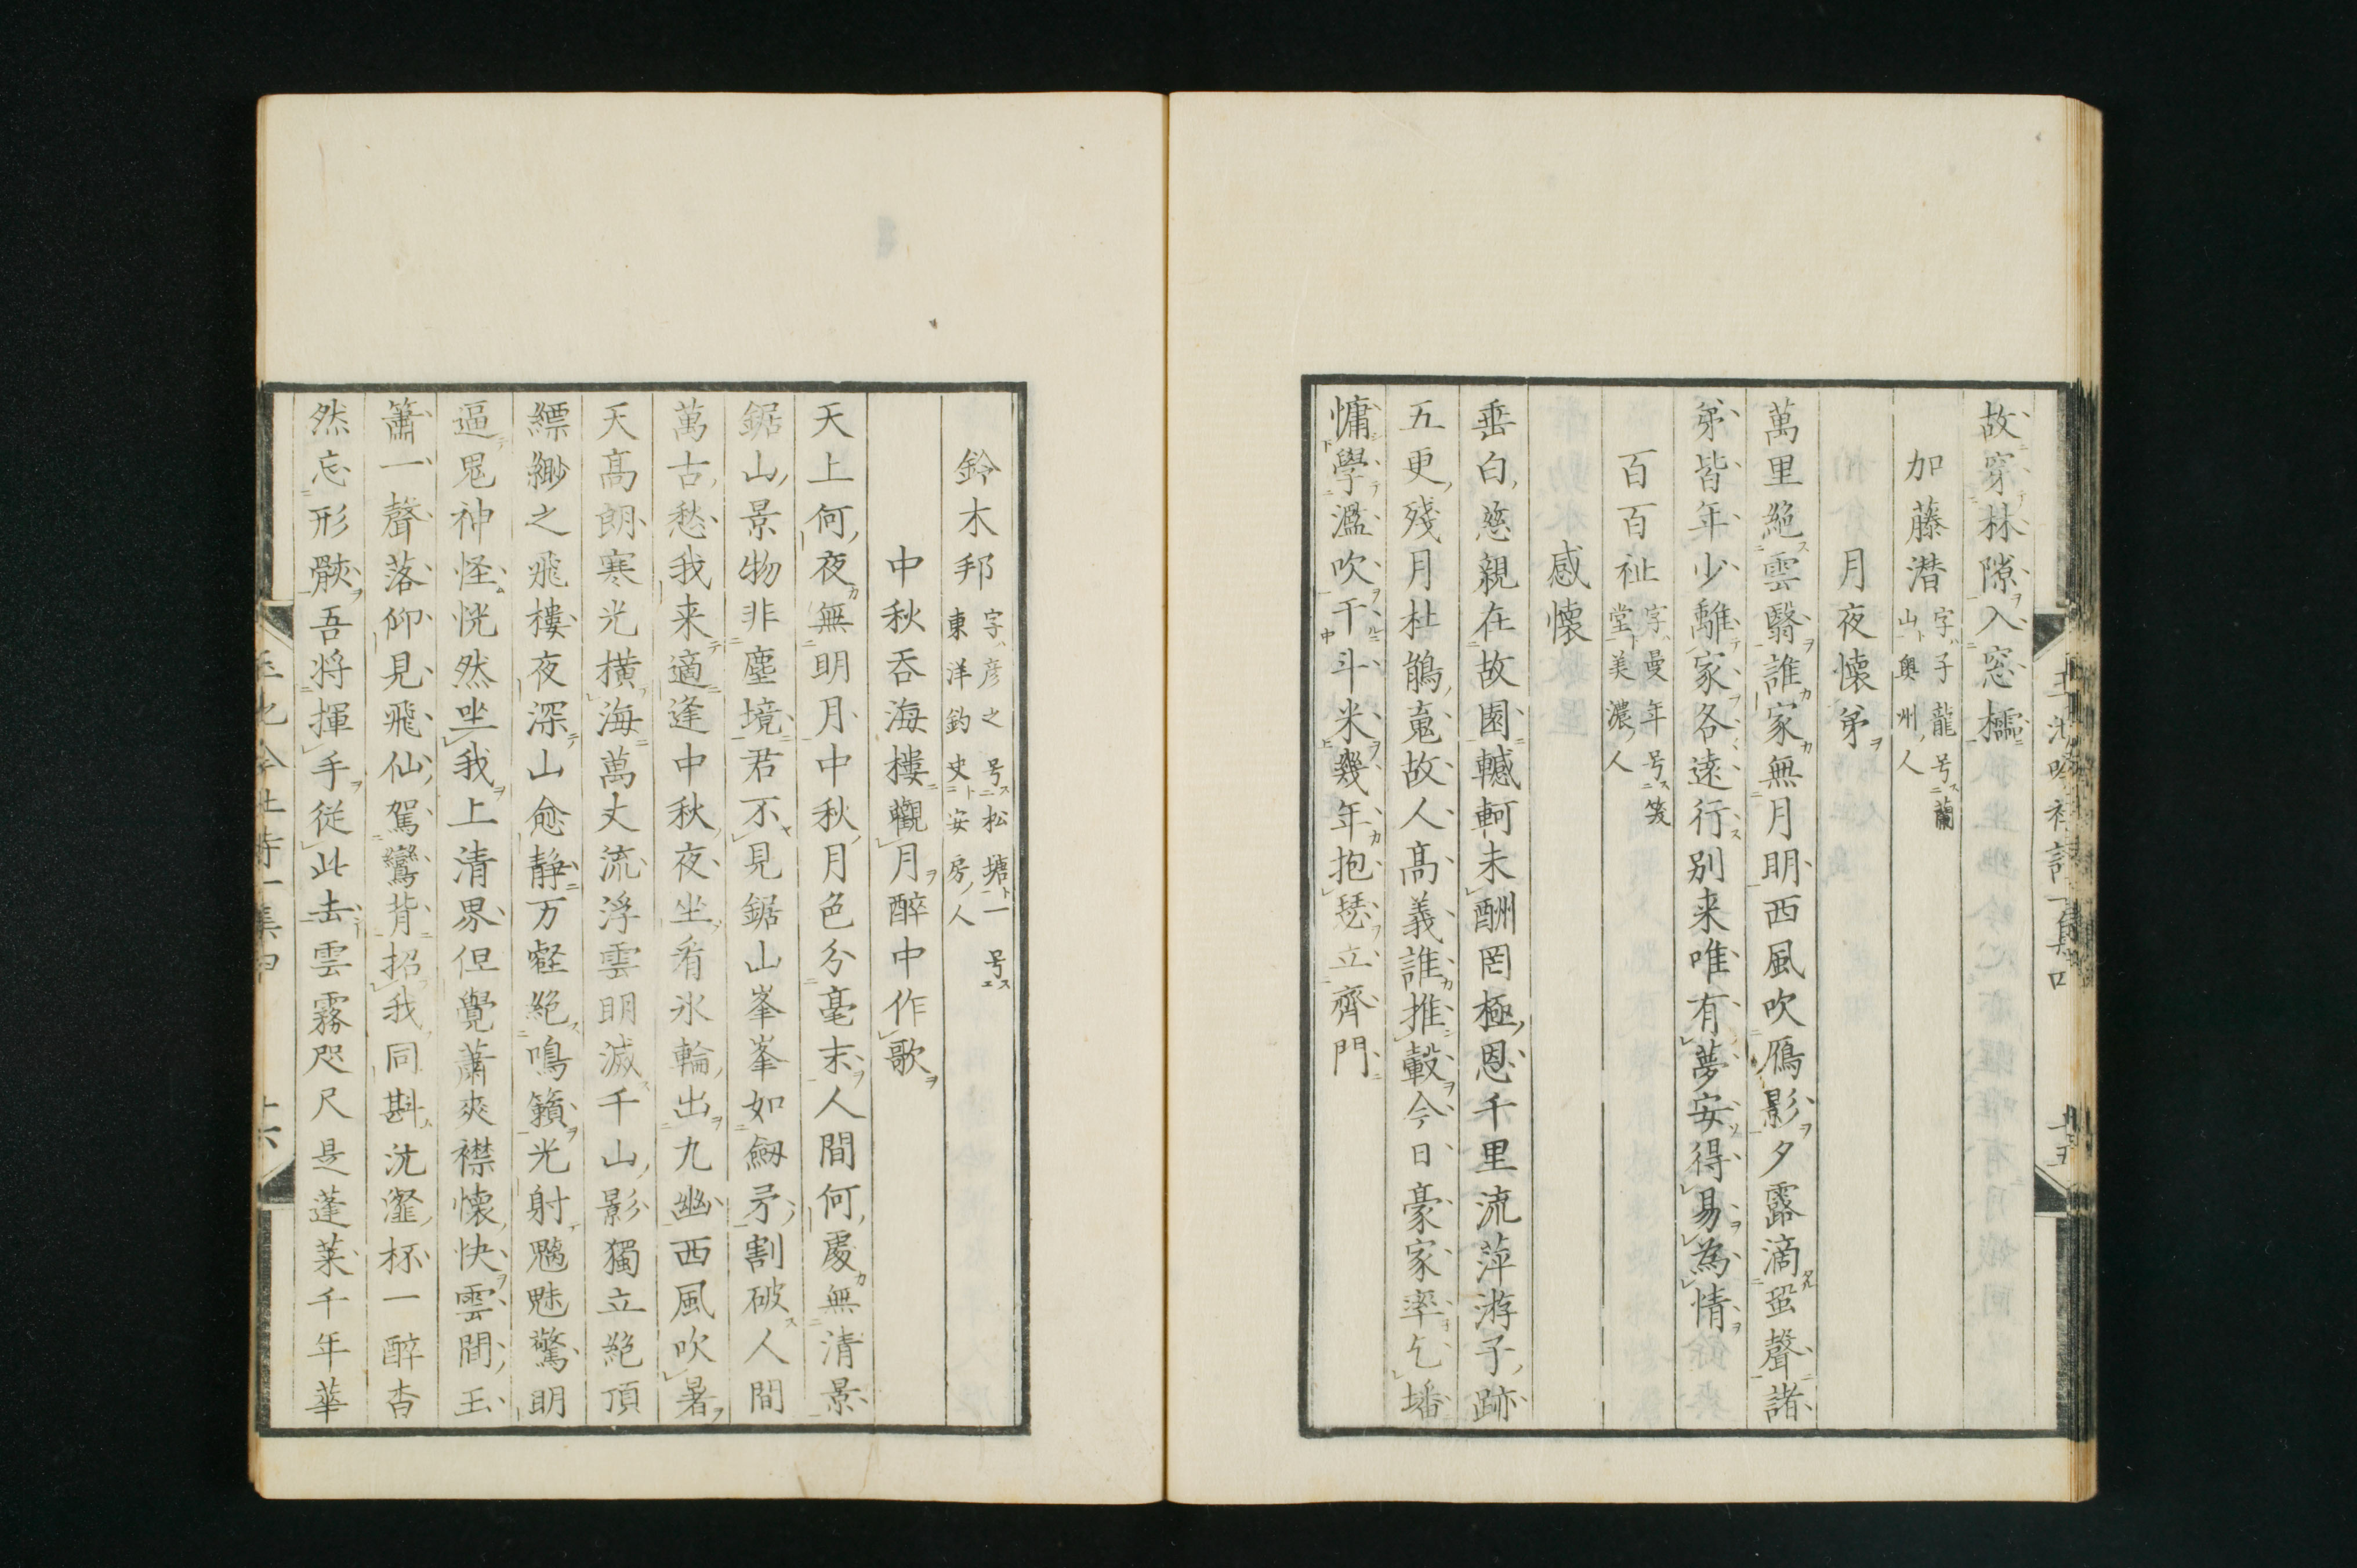 故穿林隙入窓櫺
加藤潜 字子龍号蘭山奥州人
月夜懐弟
萬里絶雲翳誰家無月明西風吹鴈影夕露滴蛩聲諸
弟皆年少離家各遠行別来唯有夢安得易為情
百百祉 字曼年号笈堂美濃人
感懐
垂白慈親在故園轗軻未酬罔極恩千里流萍游子跡
五更殘月杜鵑寃故人高義誰推轂今日豪家率乞墦
慵學濫吹干斗米幾年抱瑟立齊門
鈴木邦 字彦之号松塘一号東洋釣史安房人
中秋呑海樓觀月醉中作歌
天上何夜無明月中秋月色分毫末人間何處無清景
鋸山景物非塵境君不見鋸山峯峯如劔矛割破人間
萬古愁我来適逢中秋夜坐看氷輪出九幽西風吹暑
天高朗寒光横海萬丈流浮雲明滅千山影獨立絶頂
縹緲之飛樓夜深山愈静万壑絶鳴籟光射魑魅驚明
逼鬼神怪恍然坐我上清界但覺蕭爽襟懐快雲間玉
簫一聲落仰見飛仙駕鸞背招我同斟沆瀣杯一醉杳
然忘形骸吾将揮手従此去雲霧咫尺是蓬莱千年華